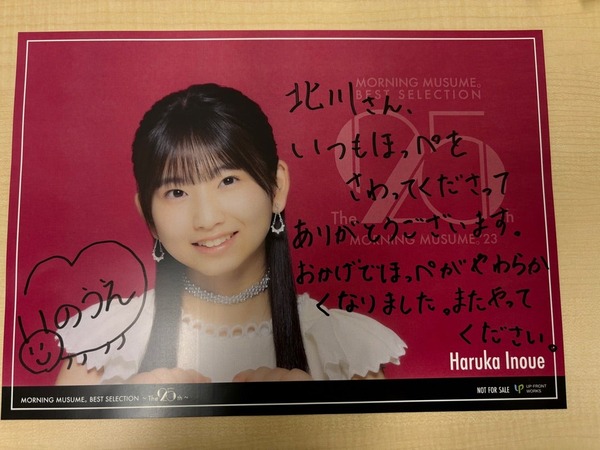 MORNING MUSUME。
BEST SELECTION
25
The th
MORNING MUSUME。'23
北川さん、
いつもほっぺを
さわってくださって
ありがとうございます。
おかげでほっぺがやわらか
くなりました。またやって
ください。
いのうえ
Haruka Inoue
MORNING MUSUME。BEST SELECTION ~The 25 th~
NOT FOR SALE
UP-FRONT
WORKS